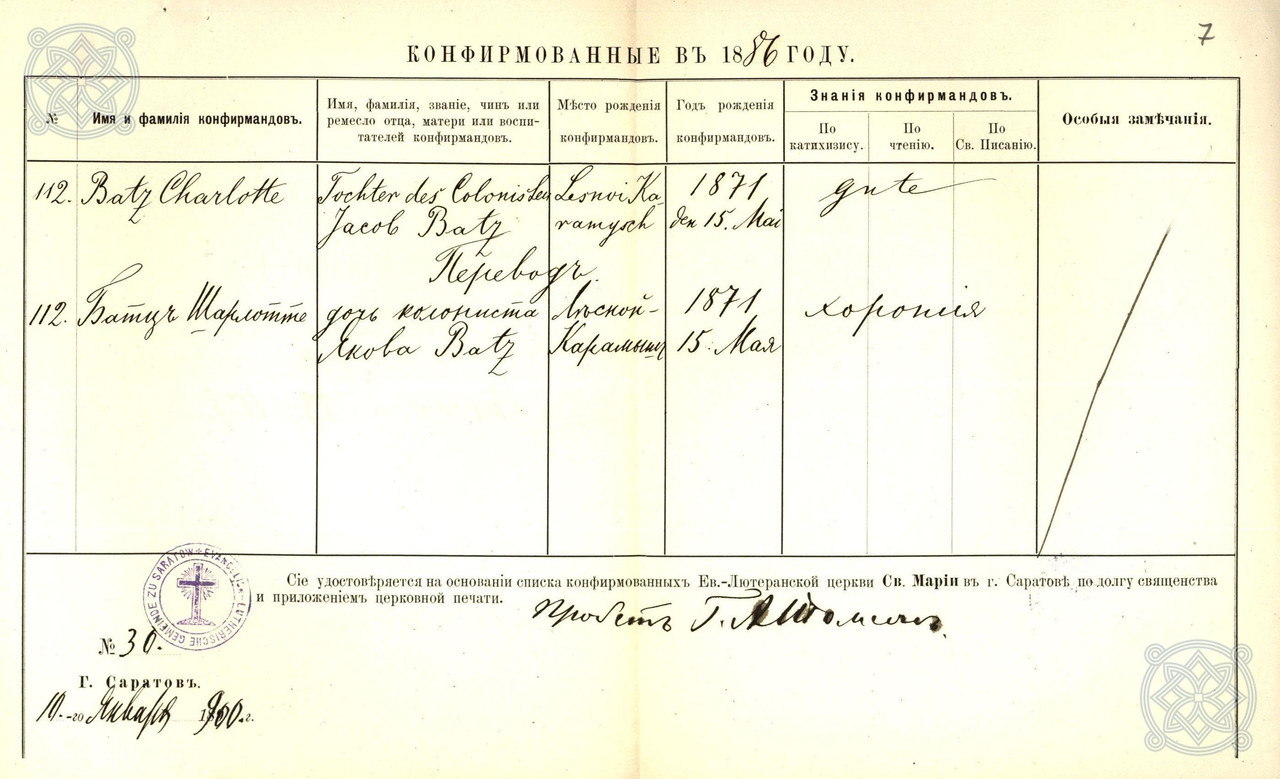 7
КОНФИРМОВАННЫЕ ВЪ 1886 ГОДУ.
№
Имя и фамилія конфирмандовъ.
Имя, фамилія, званіе, чинъ или
ремесло отца, матери или воспи-
тателей конфирмандовъ.
Мѣсто рожденія
конфирмандовъ.
Годъ рожденія
конфирмандовъ.
Знанія конфирмандовъ.
По
катихизису.
По
чтенію.
По
Св. Писанію.
Особыя замѣчанія.
112. Batz Charlotte
Tochter des Colonisten
Jacob Batz
Lesnoi Ka-
ramysch
1871
den 15. Mai
gute
Переводъ.
112. Батцъ Шарлотте
дочь колониста
Якова Batz
Лѣсной-
Карамышъ
1871
15. Мая
хорошія
EVANGELISCH-LUTHERISCHE GEMEINDE ZU SARATOW
Сіе удостовѣряется на основаніи списка конфирмованныхъ Ев.-Лютеранской церкви Св. Маріи въ г. Саратовѣ по долгу священства
и приложеніемъ церковной печати.
Пробстъ Г.
№ 30.
Г. Саратовъ.
10-го Января 1900 г.